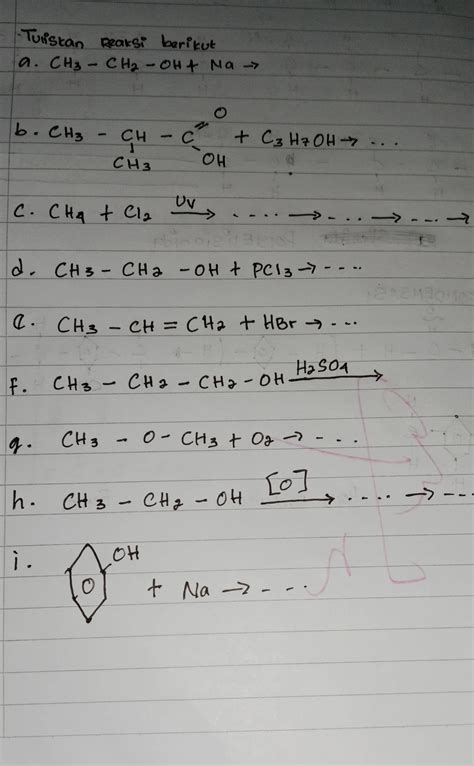 Tuliskan reaksi berikut
a. CH3 - CH2 - OH + Na →
b. CH3 - CH - C = O + C3H7OH → ...
CH3 OH
c. CH4 + Cl2 UV → ..... → ..... → .... →
d. CH3 - CH2 - OH + PCl3 → ....
e. CH3 - CH = CH2 + HBr → ...
f. CH3 - CH2 - CH2 - OH H2SO4 →
g. CH3 - O - CH3 + O2 → ....
h. CH3 - CH2 - OH [O] → .... → ...
i. OH + Na → ....